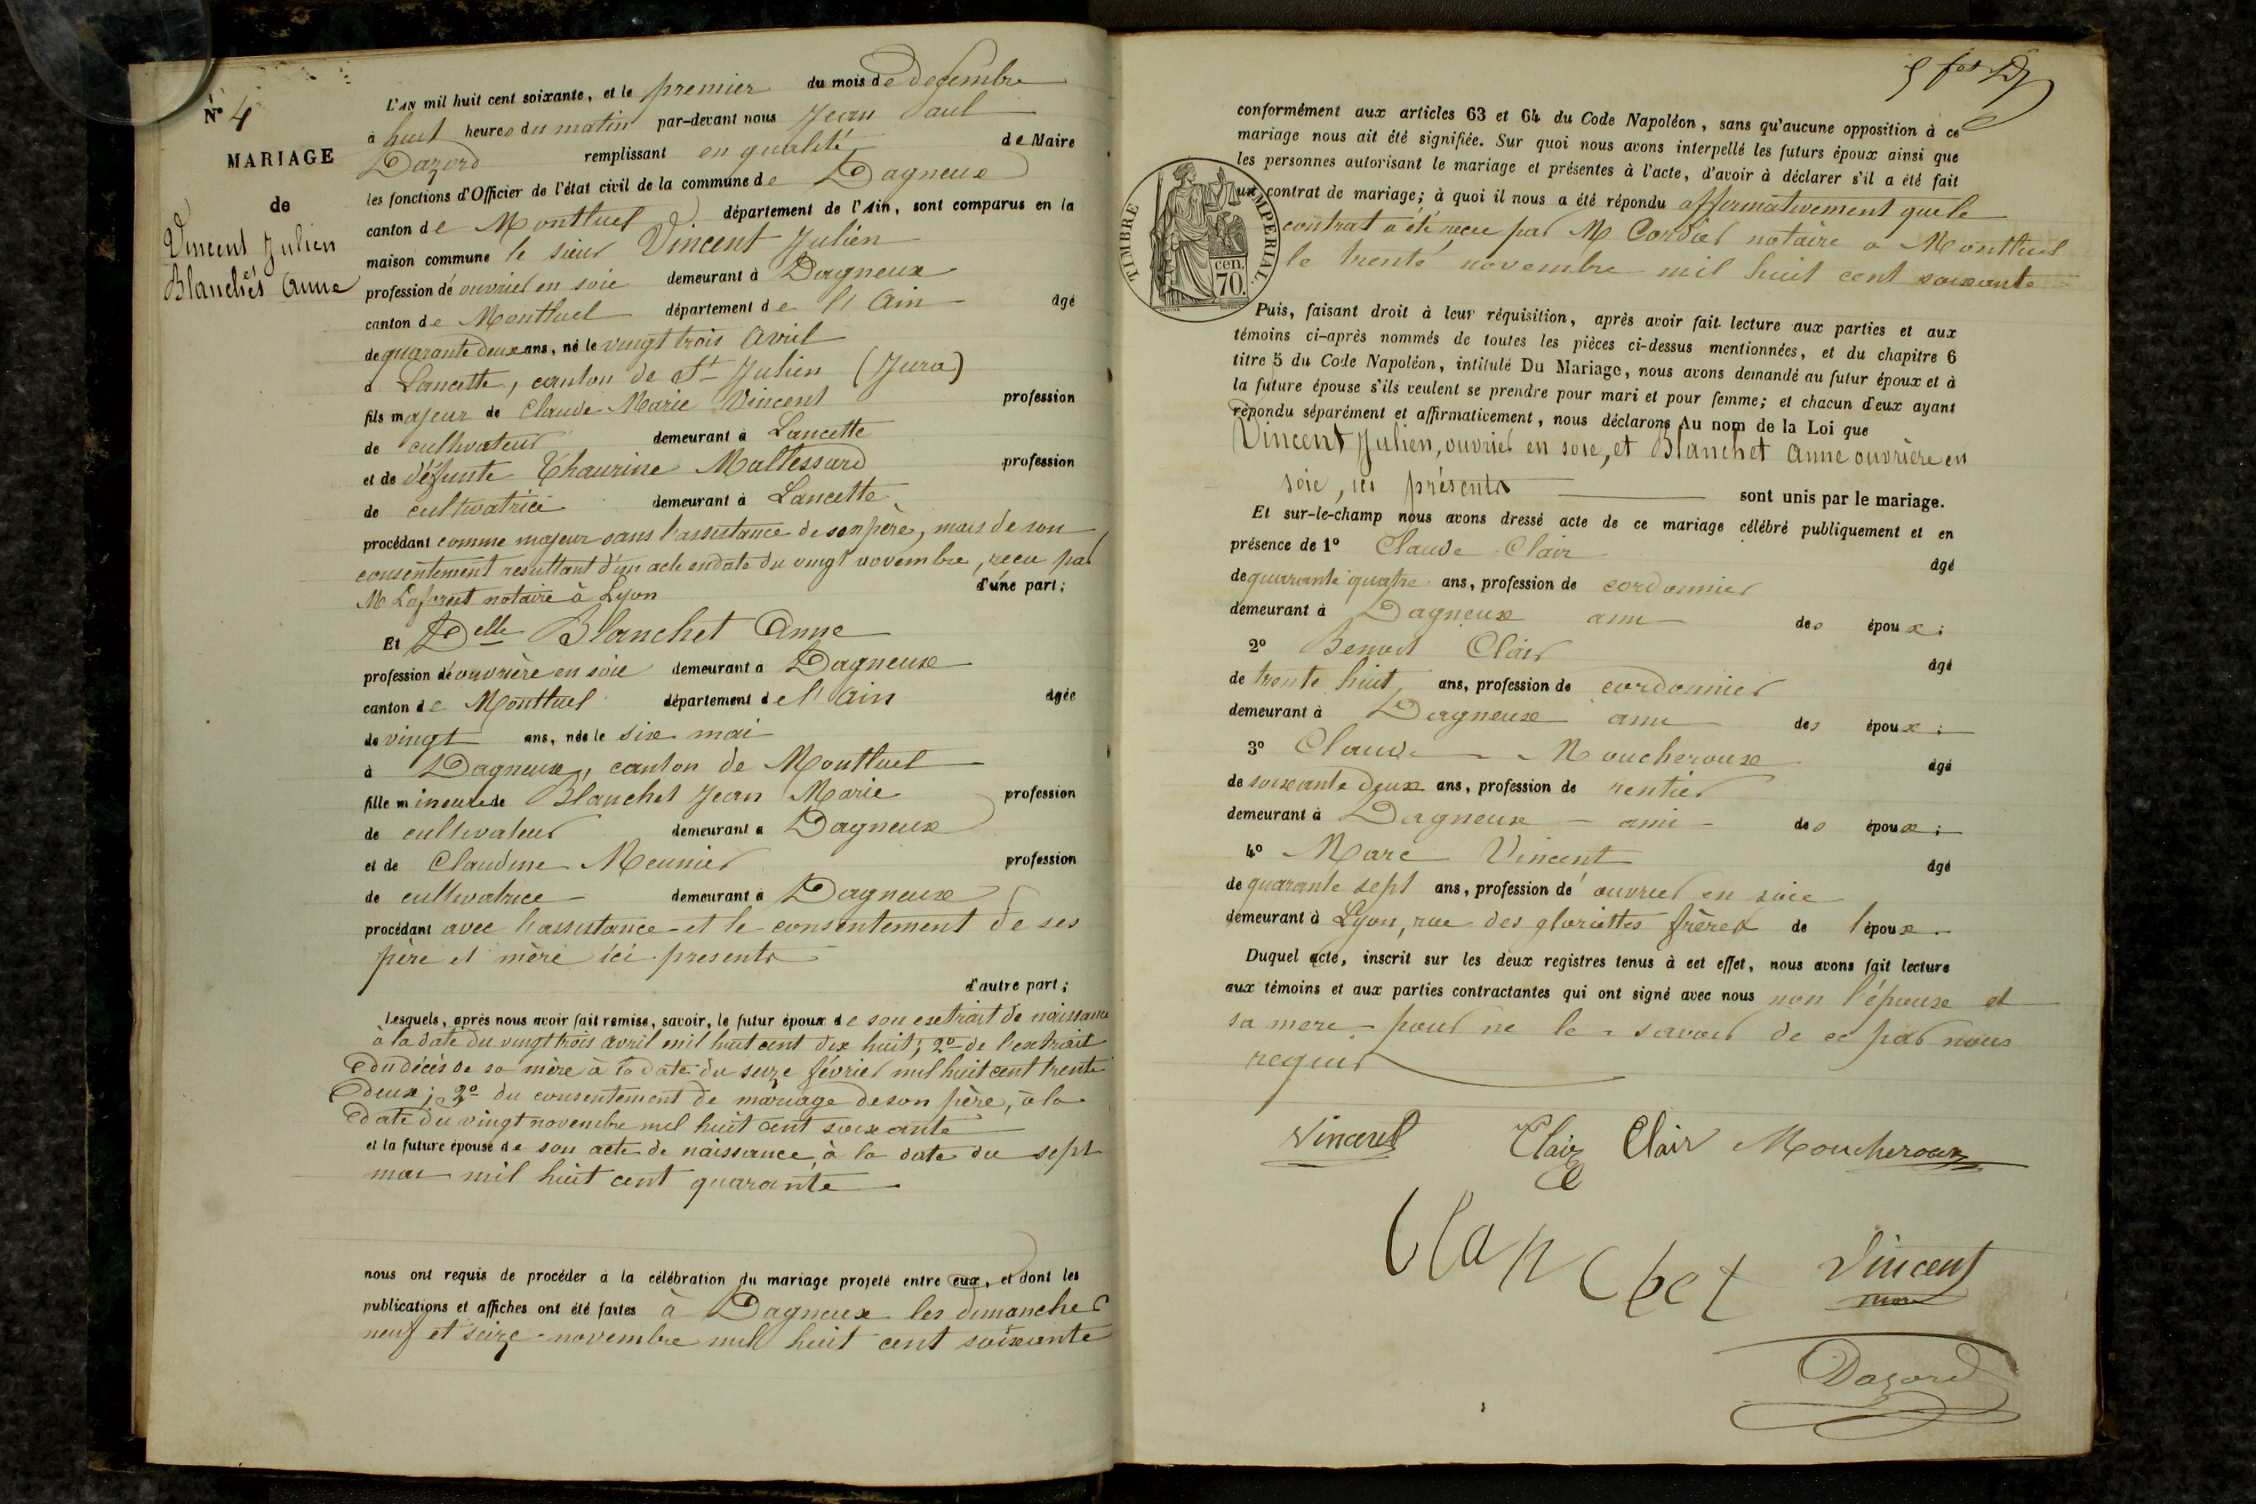 N° 4
MARIAGE
de
Vincent Julien
Blanchet Anne
L'AN mil huit cent soixante, et le premier du mois de décembre
à huit heures du matin par-devant nous Jean Paul
Dazord remplissant en qualité de Maire
les fonctions d'Officier de l'état civil de la commune de Dagneux
canton de Montluel département de l'Ain, sont comparus en la
maison commune le sieur Vincent Julien
profession d'ouvrier en soie demeurant à Dagneux
canton de Montluel département de l'Ain âgé
de quarante deux ans, né le vingt trois avril
à Lancette, canton de St Julien (Jura)
fils majeur de Claude Marie Vincent profession
de cultivateur demeurant à Lancette
et de défunte Thaurine Maltessard profession
de cultivatrice demeurant à Lancette
procédant comme majeur sans l'assistance de son père, mais de son
consentement resultant d'un acte en date du vingt novembre, reçu par
M Laforest notaire à Lyon d'une part;
Et Delle Blanchet Anne
profession d'ouvrière en soie demeurant à Dagneux
canton de Montluel département de l'Ain âgée
de vingt ans, née le six mai
à Dagneux, canton de Montluel
fille mineure de Blanchet Jean Marie profession
de cultivateur demeurant à Dagneux
et de Claudine Meunier profession
de cultivatrice demeurant à Dagneux
procédant avec l'assistance et le consentement de ses
père et mère ici presents
d'autre part;
Lesquels, après nous avoir fait remise, savoir, le futur époux de son extrait de naissance
à la date du vingt trois avril mil huit cent dix huit; 2° de l'extrait
du décès de sa mère à la date du seize février mil huit cent trente
deux; 3° du consentement de mariage de son père, à la
date du vingt novembre mil huit cent soixante
et la future épouse de son acte de naissance à la date du sept
mai mil huit cent quarante
nous ont requis de procéder à la célébration du mariage projeté entre eux, et dont les
publications et affiches ont été faites à Dagneux les dimanches
neuf et seize novembre mil huit cent soixante
conformément aux articles 63 et 64 du Code Napoléon, sans qu'aucune opposition à ce
mariage nous ait été signifiée. Sur quoi nous avons interpellé les futurs époux ainsi que
les personnes autorisant le mariage et présentes à l'acte, d'avoir à déclarer s'il a été fait
un contrat de mariage; à quoi il nous a été répondu affirmativement que le
contrat a été reçu par M Cordier notaire a Montluel
le trente novembre mil huit cent soixante
TIMBRE IMPERIAL.
cen.
70.
Puis, faisant droit à leur réquisition, après avoir fait lecture aux parties et aux
témoins ci-après nommés de toutes les pièces ci-dessus mentionnées, et du chapitre 6
titre 5 du Code Napoléon, intitulé Du Mariage, nous avons demandé au futur époux et à
la future épouse s'ils veulent se prendre pour mari et pour femme; et chacun d'eux ayant
répondu séparément et affirmativement, nous déclarons Au nom de la Loi que
Vincent Julien, ouvrier en soie, et Blanchet Anne ouvrière en
soie, ici présents sont unis par le mariage.
Et sur-le-champ nous avons dressé acte de ce mariage célébré publiquement et en
présence de 1° Claude Clair âgé
de quarante quatre ans, profession de cordonnier
demeurant à Dagneux ami des époux;
2° Benoit Clair âgé
de trente huit ans, profession de cordonnier
demeurant à Dagneux ami des époux;
3° Claude Moucheroux âgé
de soixante deux ans, profession de rentier
demeurant à Dagneux ami des époux;
4° Marc Vincent âgé
de quarante sept ans, profession d'ouvrier en soie
demeurant à Lyon, rue des gloriettes frère de l'époux.
Duquel acte, inscrit sur les deux registres tenus à cet effet, nous avons fait lecture
aux témoins et aux parties contractantes qui ont signé avec nous non l'épouse et
sa mere pour ne le savoir de ce par nous
requis
Vincent Clair Clair Moucheroux
blanchet Vincent
marc
Dazord